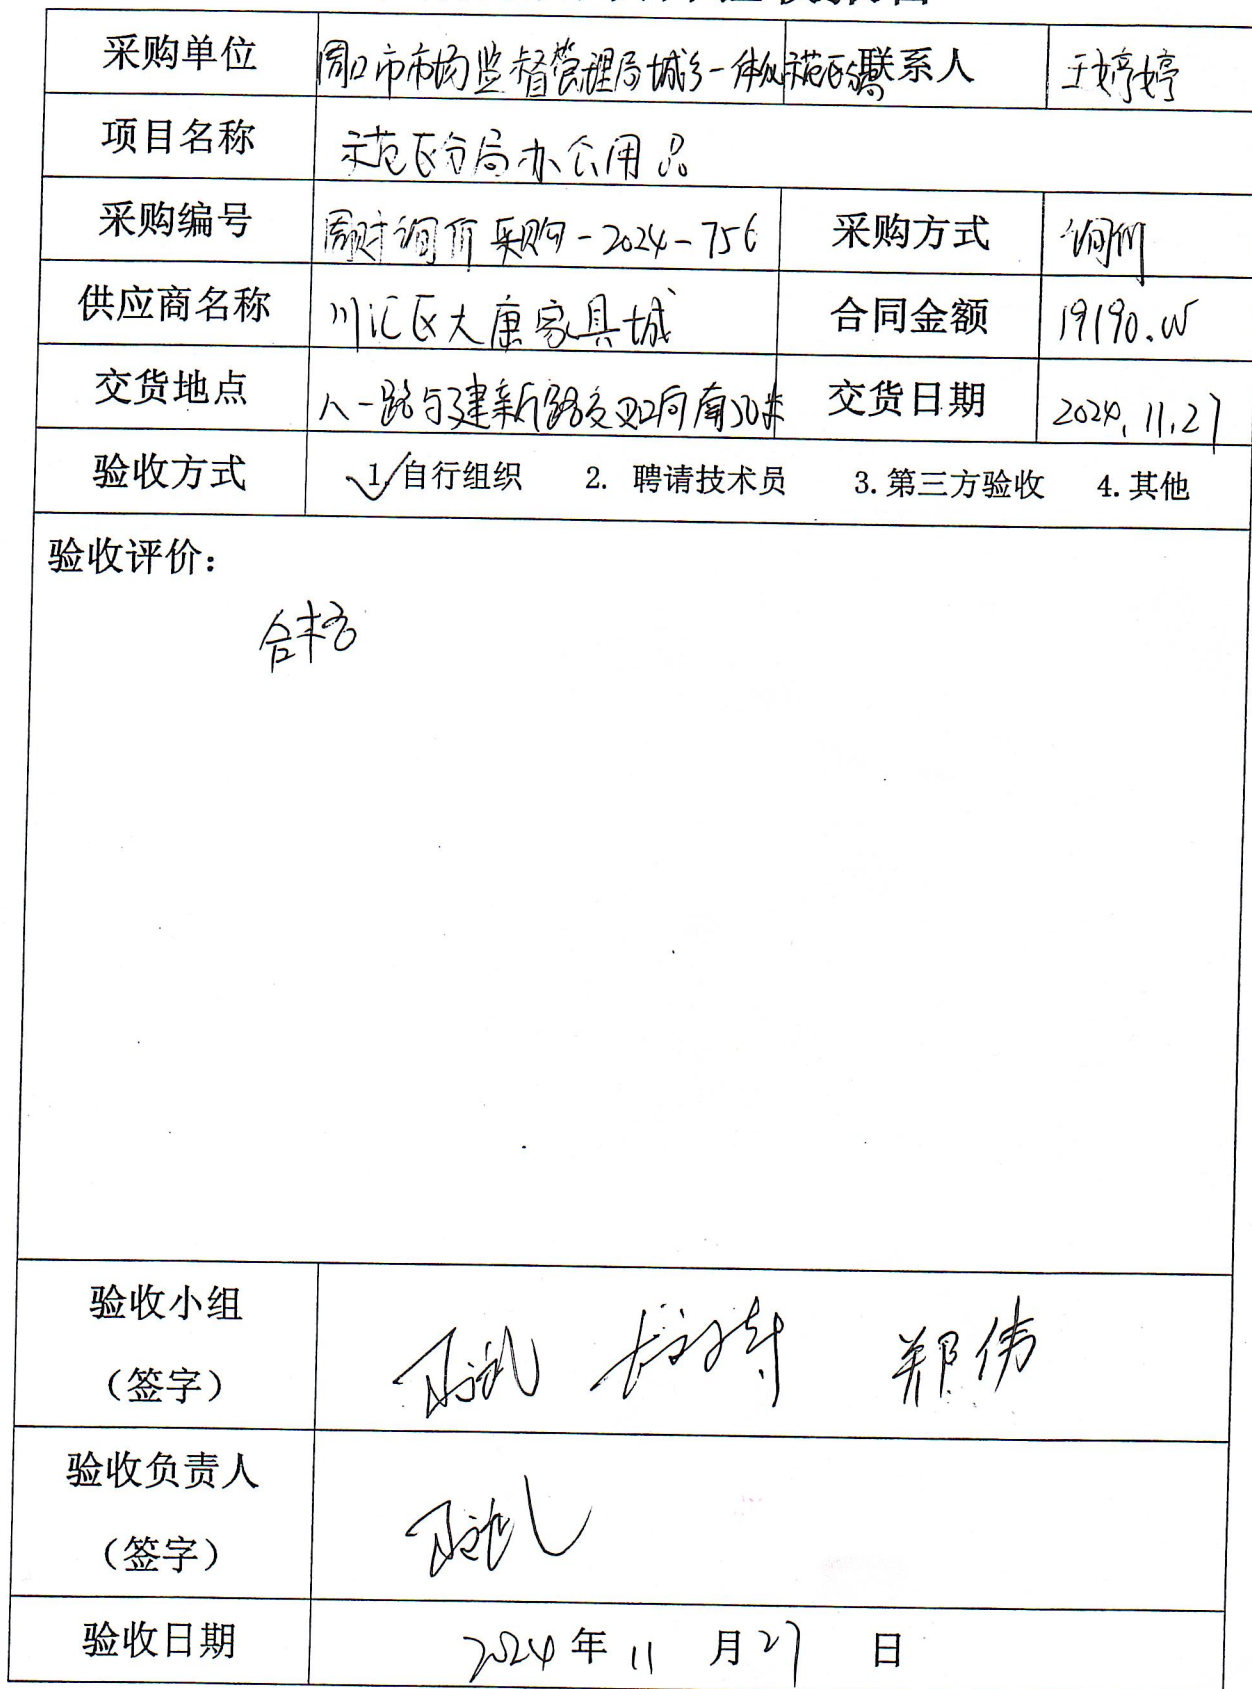 采购单位 周口市市场监督管理局城乡一体化示范区分局 联系人 王婷婷
项目名称 示范区分局办公用品
采购编号 周财询价采购-2024-756 采购方式 询价
供应商名称 川汇区大康家具城 合同金额 19190.00
交货地点 八一路与建新路交叉口向南50米 交货日期 2024.11.27
验收方式 1.自行组织 2. 聘请技术员 3.第三方验收 4.其他
验收评价：
合格
验收小组
（签字） 郑伟
验收负责人
（签字）
验收日期 2024年11月27日